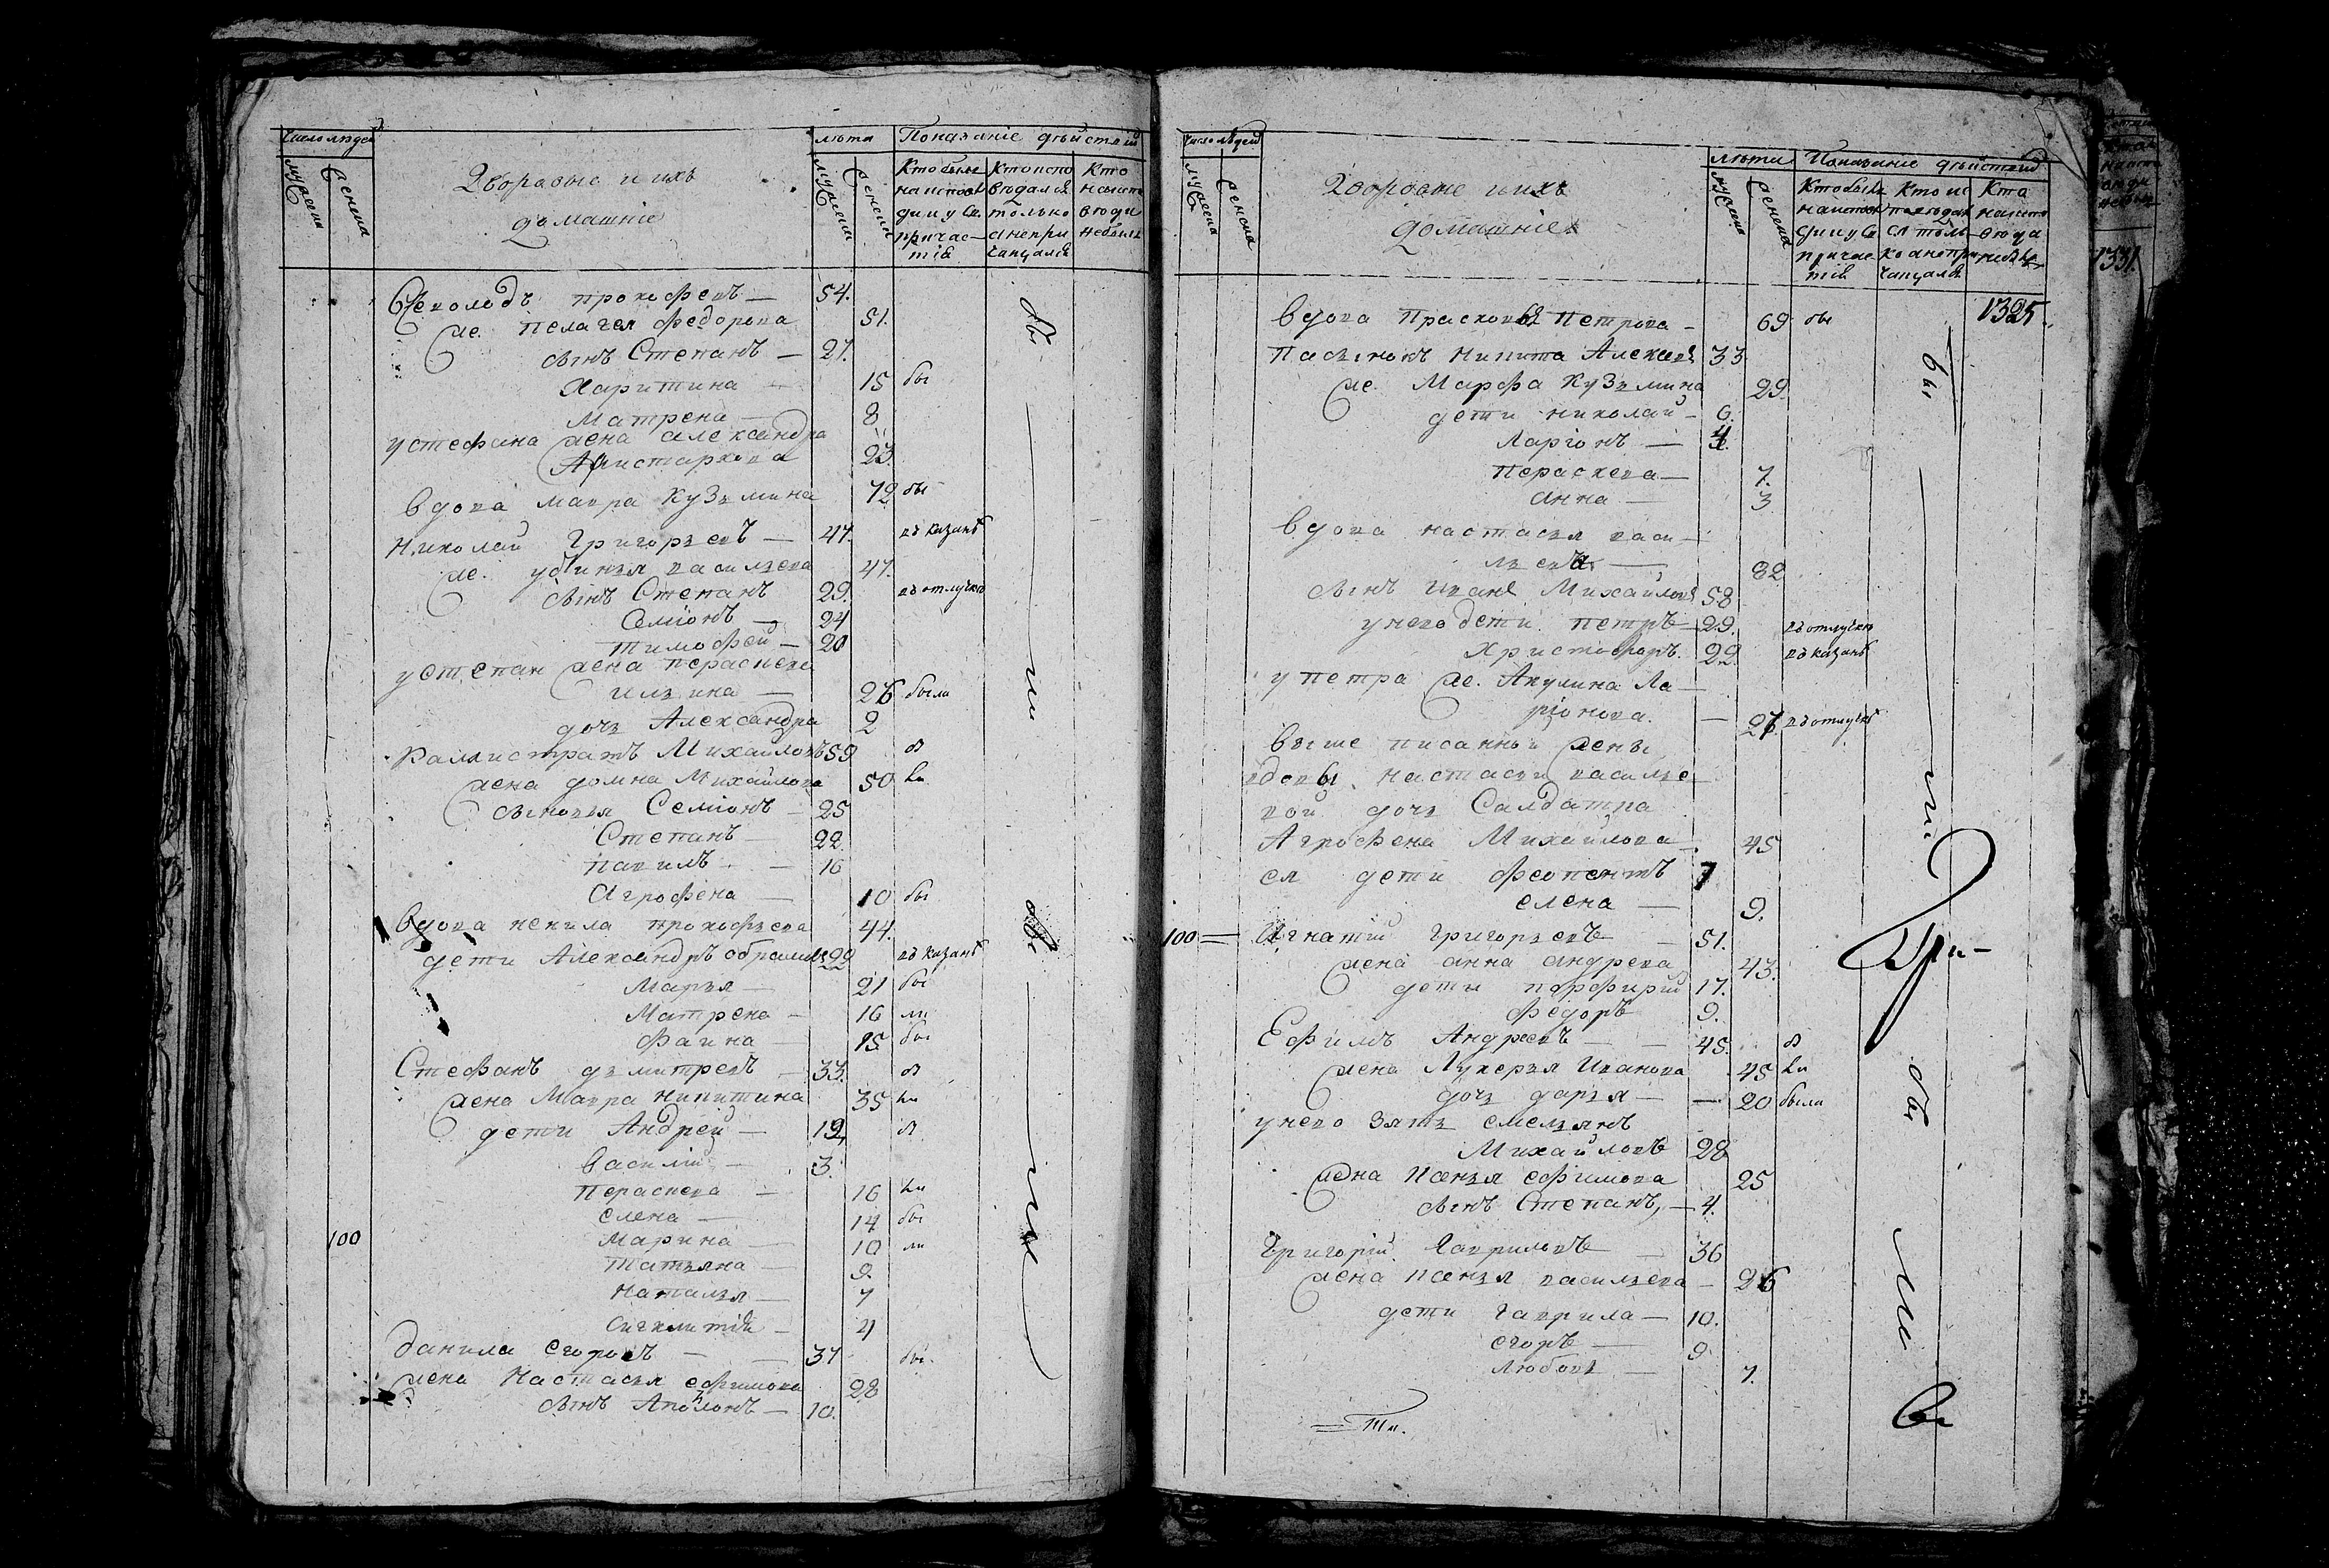 Число людей
мужеска
женска
Дворовые и ихъ
домашніе
лѣта
мужески
женски
Показаніе дѣйствій
Кто былъ на исповѣди и у Св. причастія
Кто исповѣдался только а не причащался
Кто на исповѣди не былъ
прокофьевъ — 54.
же. Пелагея Федорова 51.
сынъ Степанъ — 27.
Харитина — 15 бы
Матрена — 8
у стефана жена александра
Аристархова 23.
вдова мавра Кузьмина 72 бы
Николай Григорьевъ — 47. въ казанѣ
же. устинья васильева 47.
сынъ Степанъ 29. въ отлучкѣ
Семіонъ — 24
тимофей — 20
у степан жена параскева
ильина — 26 была
дочь Александра 2
Калистратъ Михайловъ 59 б
жена домна Михайлова 50 ли
сыновья Семіонъ — 25
Степанъ 22.
павилъ — 16
Агрофена — 10 бы
вдова ненила прокофьева 44.
дети Александръ 29 въ казанѣ
Марья — 21 бы
Матрена — 16 ли
Фаина — 15 бы
Стефанъ дьмитревъ — 33. б
жена Мавра никитина 35 ли
дети Андрей — 12 б
василій — 3.
Параскева — 16 ли
елена — 14 бы
100 Марина — 10 ли
татьяна — 9.
наталья — 7
4
данила егоровъ — 37 бы
жена Настасья ефимова 28
сынъ Аполонъ — 10.
бы — ли — бы — ли
Число людей
мужеска
женска
Дворовые и ихъ
домашніе
лѣта
мужеска
женска
Показаніе дѣйствій
Кто былъ на исповѣди и у Св. причастія
Кто исповѣдался только а не причащался
Кто на исповѣди не былъ
1325.
вдова Прасковья Петрова — 69 бы
пасынокъ никита Алексѣ 33
же. Марфа Кузьмина 29.
дети николай — 6.
Ларіонъ — 4.
Параскева — 7.
анна — 3
вдова настасья васи—
льева — 82
сынъ Иванъ Михайловъ 58
у него дети петръ — 29. въ отлучкѣ
Христофоръ. 22 въ казанѣ
у петра же. Акулина Ла—
ріонова. — 27. въ отлучкѣ
выше писанной жены
вдовы настасьи василье—
вой дочь Салдатка
Агрофена Михайлова — 45
ея дети 7
елена — 9.
100 = Игнатій григорьевъ — 51.
жена анна андрева 43.
дети порфирій 17.
Федоръ 9.
Ефимъ Андреевъ — 45. б
жена Лукерья Иванова 45 ли
дочь дарья — 20 была
у него зять емельянъ
Михайловъ 28
жена ефимова 25
сынъ Степанъ, — 4.
григорій гавриловъ — 36
жена васильева — 26
дети гаврила — 10.
егоръ — 9.
Любовь — 7.
бы — ли — бы — ли
1331.